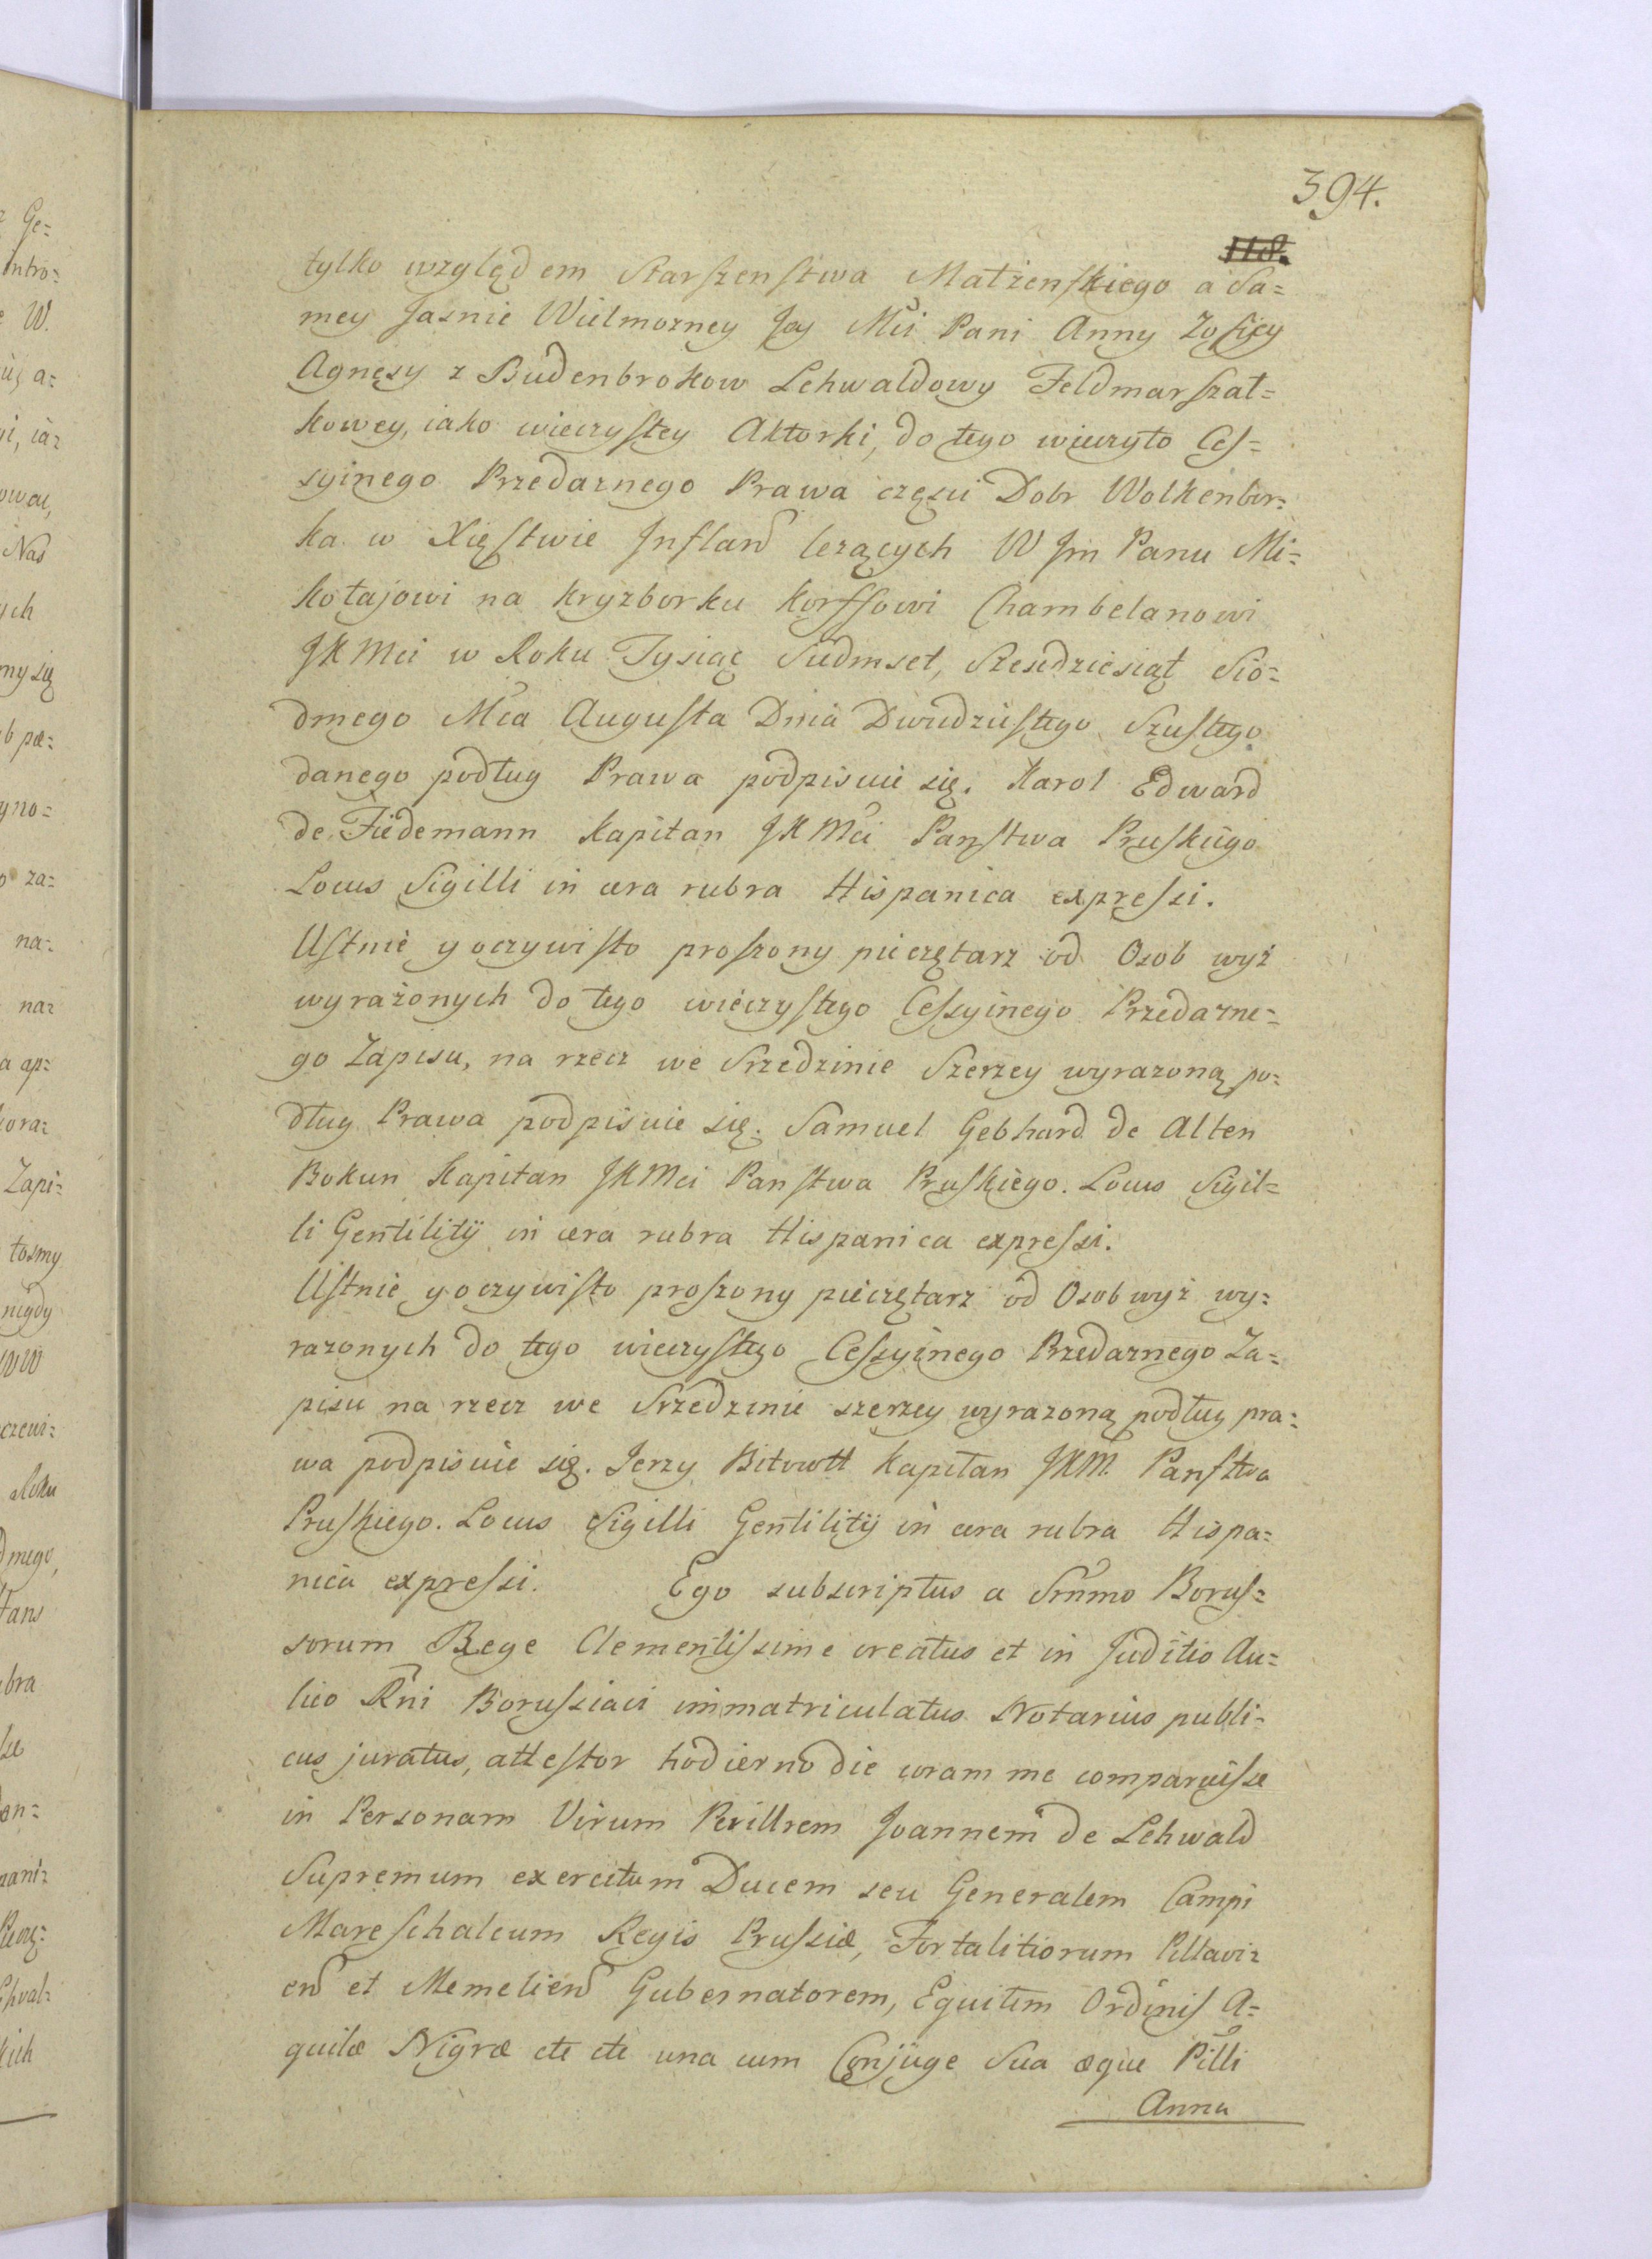 394.
118.
tylko względem Starszenstwa Małżenskiego a Sa=
mey Jasnie Wielmożney Jey Mci Pani Anny Zofiey
Agnęsy z Budenbrokow Lehwaldowy Feldmarszał=
kowey, iako wieczystey Aktorki, do tego wieczysto Ces=
syinego Przedaznego Prawa częsci Dobr Wolkenbor=
ka w Xięstwie Infland lezących W Jm Panu Mi=
kołajowi na Kryzborku Korffowi Chambelanowi
JKMci w Roku Tysiąc Siedmset, Szesdziesiąt Sio=
dmego Mca Augusta Dnia Dwudziestego Szustego
danego podług Prawa podpisuie się. Karol Edward
de Fiedemann Kapitan JKMci Panstwa Pruskiego
Locus Sigilli in cera rubra Hispanica expressi.
Ustnie y oczywisto proszony pieczętarz od Osob wyż
wyrażonych do tego wieczystego Cessyinego Przedazne=
go Zapisu, na rzecz we Srzedzinie Szerzey wyrazoną po=
dług Prawa podpisuie się. Samuel Gebhard de Alten
Bokun Kapitan JKMci Panstwa Pruskiego. Locus Sigil=
li Gentilitÿ in cera rubra Hispanica expressi.
Ustnie y oczywisto proszony pieczętarz od Osob wyż wy=
razonych do tego wieczystego Cessyinego Przedaznego Za=
pisu na rzecz we Srzedzinie szerzey wyrazoną podług pra=
wa podpisuie się. Jerzy Bitowtt Kapitan JKM. Panstwa
Pruskiego. Locus Sigilli Gentilitÿ in cera rubra Hispa=
nica expressi. Ego subscriptus a Srnmo Borus=
sorum Rege Clementissime creatus et in Juditio Au=
lico Rni Borussiaci immatriculatus Notarius publi=
cus juratus, attestor hodierno die coram me comparuisse
in Personam Virum Perillrem Joannem de Lehwald
Supremum exercitum Ducem seu Generalem Campi
Mareschalcum Regis Prussiæ, Fortalitiorum Pillavi=
end et Memeliend Gubernatorem, Equitem Ordinis A=
quilæ Nigræ etc etc una cum Conjuge Sua æque Pilli
Anna